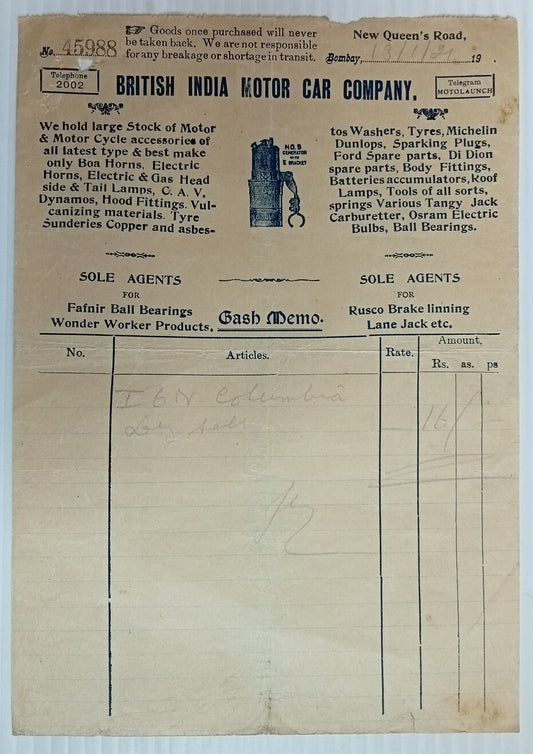 No. 45988
☞ Goods once purchased will never
be taken back. We are not responsible
for any breakage or shortage in transit.
New Queen's Road,
Bombay, 13/1/21 19 .
Telephone
2002
BRITISH INDIA MOTOR CAR COMPANY.
Telegram
MOTOLAUNCH
We hold large Stock of Motor
& Motor Cycle accessories of
all latest type & best make
only Boa Horns, Electric
Horns, Electric & Gas Head
side & Tail Lamps, C. A. V,
Dynamos, Hood Fittings. Vul-
canizing materials. Tyre
Sunderies Copper and asbes-
NO. 5
GENERATOR
WITH
BRACKET
tos Washers, Tyres, Michelin
Dunlops, Sparking Plugs,
Ford Spare parts, Di Dion
spare parts, Body Fittings,
Batteries accumulators, Roof
Lamps, Tools of all sorts,
springs Various Tangy Jack
Carburetter, Osram Electric
Bulbs, Ball Bearings.
SOLE AGENTS
FOR
Fafnir Ball Bearings
Wonder Worker Products.
Cash Memo.
SOLE AGENTS
FOR
Rusco Brake linning
Lane Jack etc.
No.
Articles.
Rate.
Amount.
Rs. as. ps
Columbia
16/-